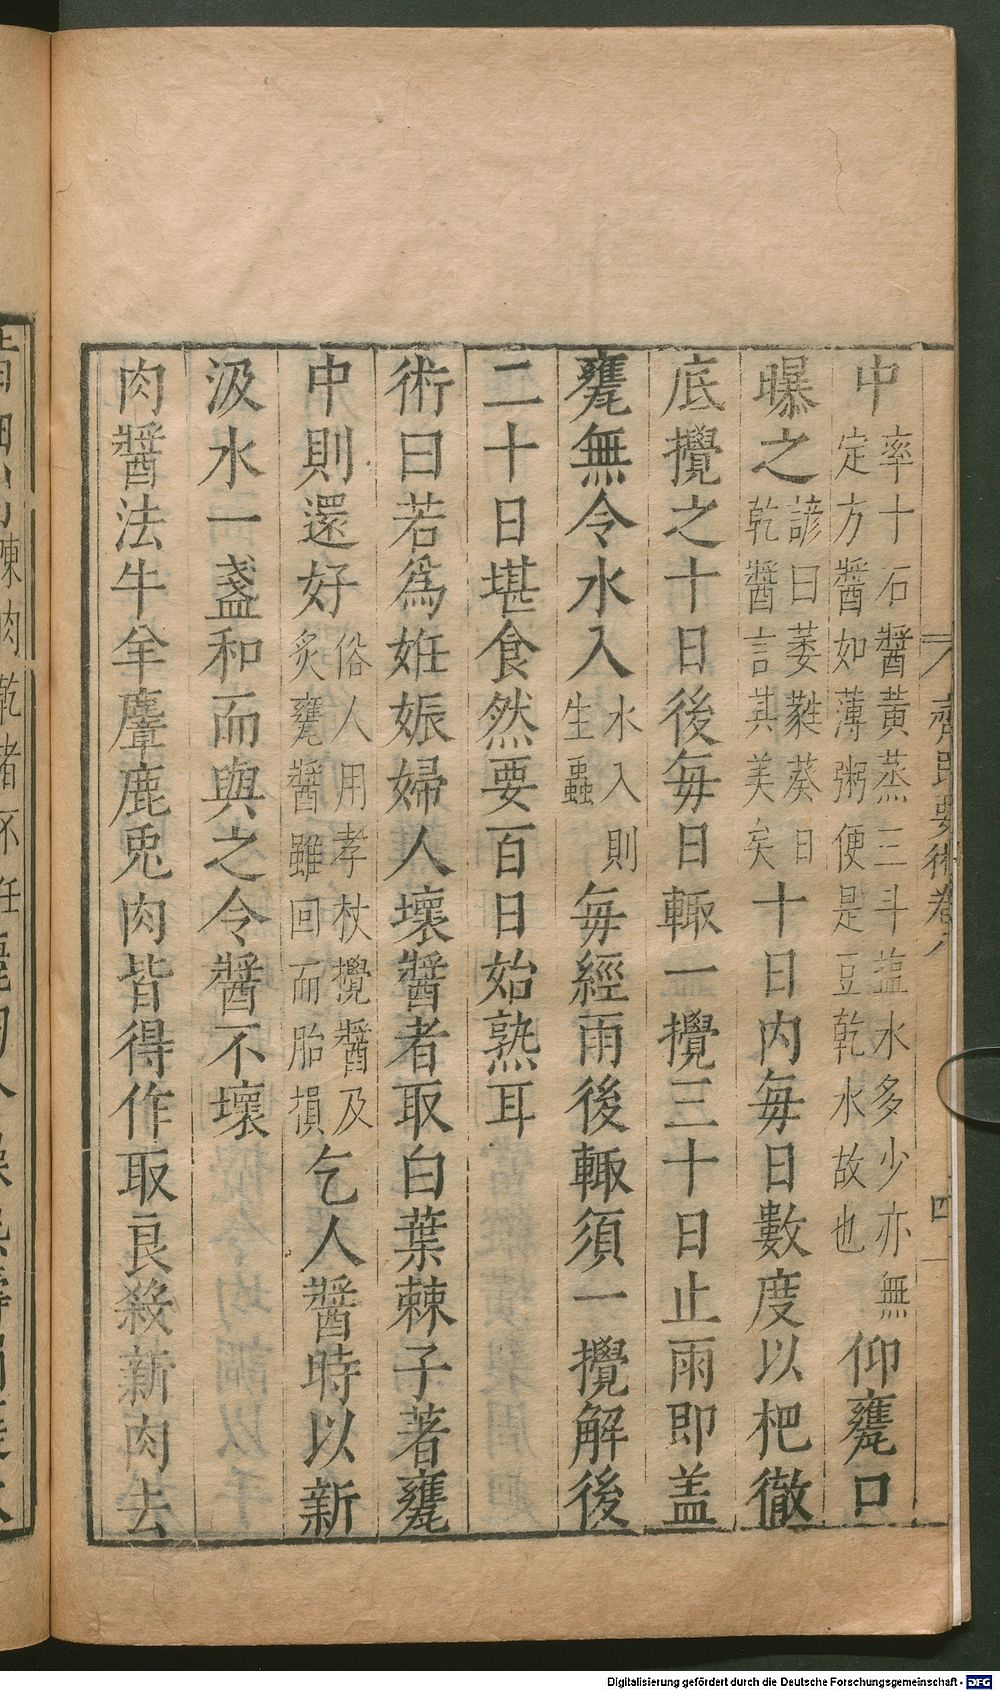 中率十石醬黃蒸三斗塩水多少亦無定方醬如薄粥便是豆乾水故也仰甕口
曝之諺曰萎蕤葵日乾醬言其美矣十日内每日數度以杷徹
底攪之十日後每日輙一攪三十日止雨即盖
甕無令水入水入則生蟲每經雨後輙須一攪解後
二十日堪食然要百日始熟耳
術曰若爲姙娠婦人壞醬者取白葉棘子著甕
中則還好俗人用孝杖攪醬及炙甕醬雖回而胎損乞人醬時以新
汲水一盞和而與之令醬不壞
肉醬法牛羊麞鹿兎肉皆得作取良殺新肉去
齊民要術卷八
四
Digitalisierung gefördert durch die Deutsche Forschungsgemeinschaft - DFG